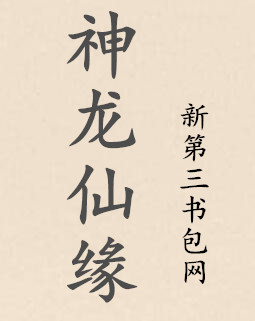 神龙仙缘
新第三书包网